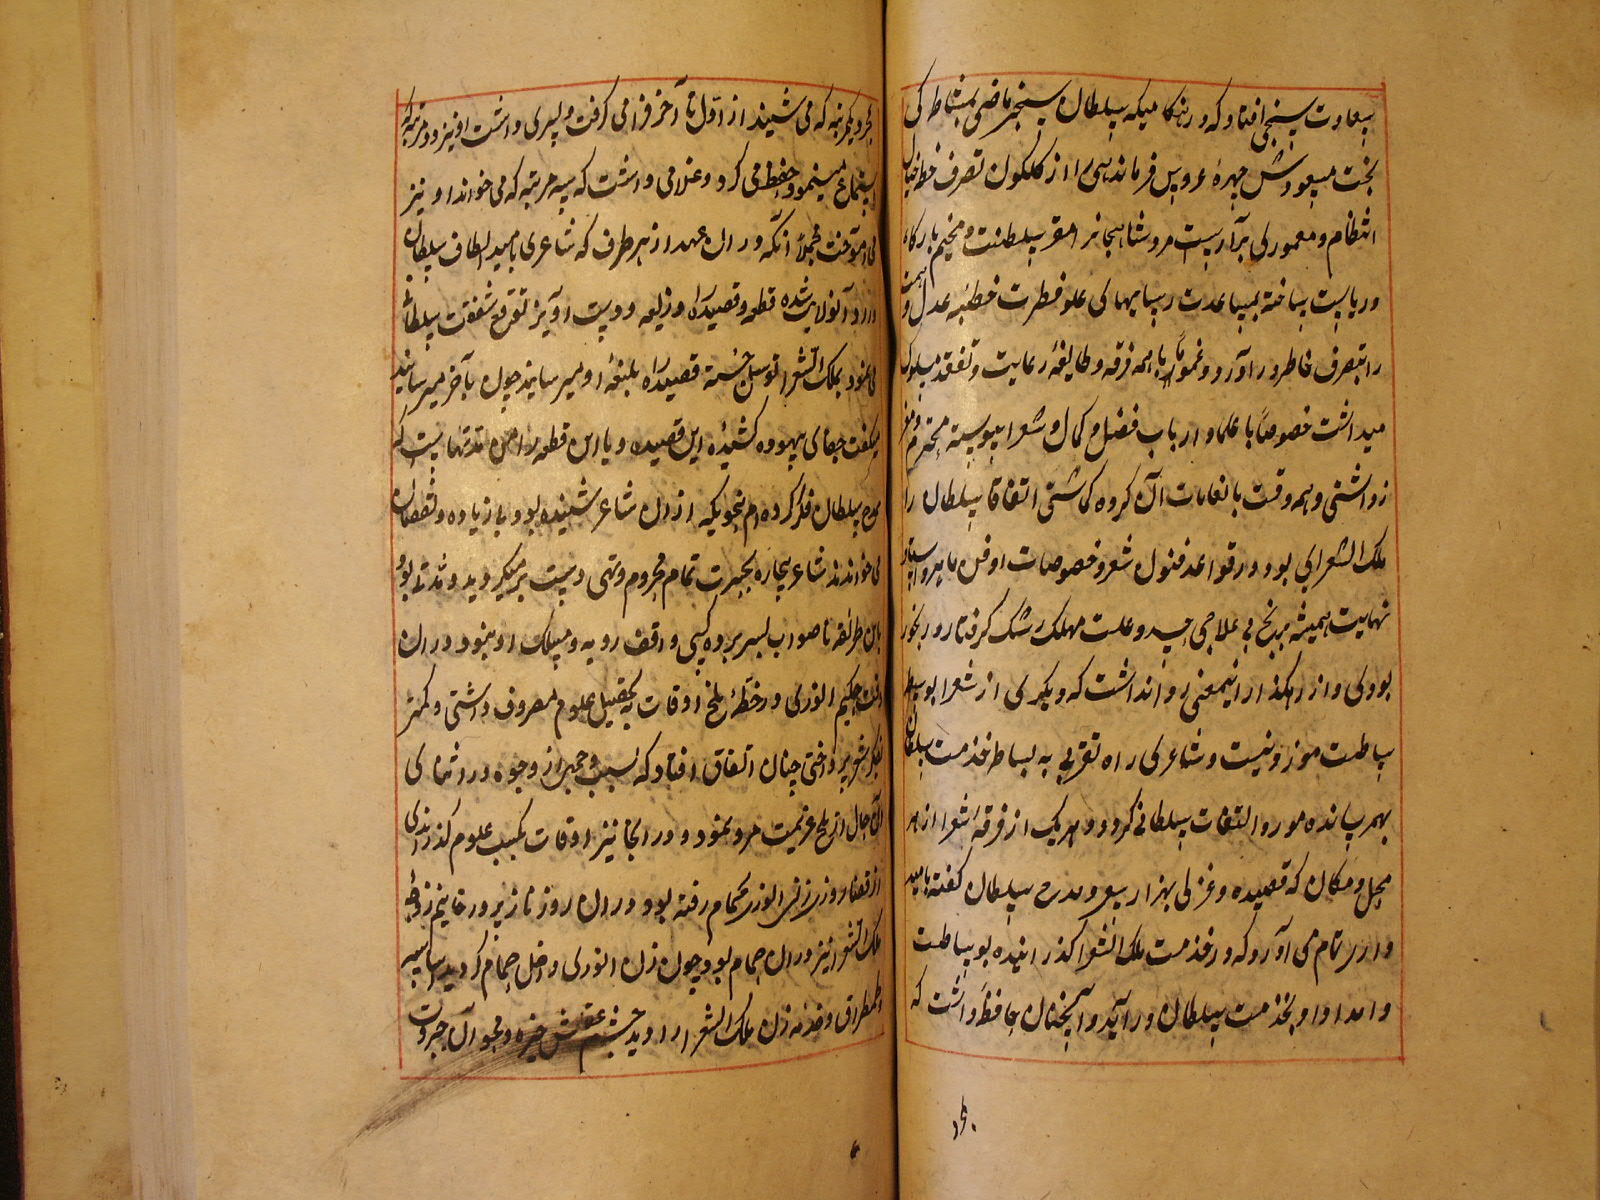 بعادت سنجی افتاد که در هنگامیکه سلطان سنجر ماضی بمشاطکی
بخت مسعودش چهرهٔ عروس فرماندهی را از کلکون تصرف خط خال
انتظام و معموری برآراست مرو شاهیجانرا مقر سلطنت و مخیم بارکاه
و ریاست ساخته بمساعدت رسایهای علو فطرت خطبه عدل و
را بتصرف خاطر در آورد و عموماً با همه فرقه و طایفهٔ رعایت و تفقد مسلوک
میداشت خصوصاً با علما و ارباب فضل و کمال و شعرا پیوسته محترم و معزز
داشتی و همه وقت بانعامات آن کروه کماشتی اتفاقا سلطان را
ملک الشعرایی بود در قواعد فنون شعر و خصوصات او فن ماهر و استاد
نهایت همیشه برنج بی علاجی حسد و علت مهلک رشک کرفتار و رنجور
بودی و از رهکذار اینمعنی روا نداشت که دیکری از شعرا بوسیله
ساطت موزونیت و شاعری راه تقربی به بساط خدمت سلطان
بهمرسانده مورد التفات سلطانی کردد و هر یک از فرقهٔ شعرا از هر
محل و مکان که قصیده و غزلی بهزار سعی و مدح سلطان کفته بامید
واری تمام می آورد که در خدمت ملک الشعرا کذرانیده بوساطت
و امداد او بخدمت سلطان در آید و آنچنان حافظه داشت که
بمجرد یکمرتبه که می شنید از اول تا آخر فرا می کرفت و پسری داشت او نیز دو مرتبه که
استماع مینمود حفظ می کرد و غلامی داشت که سه مرتبه که می خواند او نیز
می آموخت مجملاً آنکه در ان عهد از هر طرف که شاعری بامید الطاف سلطان
وارد آنولایت شده قطعه و قصیده را وزیله و دست آویز توقع شفقت سلطانی
می نمود بملک الشعرا توسل جسته قصیده را بلبغه او میرسانید چون بآخر میرسانید
میکفت جفای بیهوده کشیدهٔ این قصیده و یا این قطعه را من مدتهاست که
مدح سلطان فکر کرده ام بنحویکه از ان شاعر شنیده بود بی زیاده و نقصان
می خواندند شاعر بیچاره بحسرت تمام محروم و تهی دست برمیکردید و مدتی بود
باین طریقه ناصواب بسر برده کسی واقف رویه و مسلک او نبود در ان
وقت حکیم انوری در خطهٔ بلخ اوقات به تحصیل علوم مصروف داشتی و کمتر
بفکر شعر پرداختی چنان اتفاق افتاد که بسبب وجهی از وجوه در اثنای
آن حال از بلخ عزیمت مرو نمود و در انجا نیز اوقات بکسب علوم کذراندی
از قضا روزی زن انوری بحمام رفته بود و در ان روز نازپرور خانیم زوجهٔ
ملک الشعرا نیز در ان حمام بود چون زن انوری داخل حمام کردید اسباب
و طمطراق و خدمه زن ملک الشعرا را دید چشم عقلش خیره و محو آن جبروت